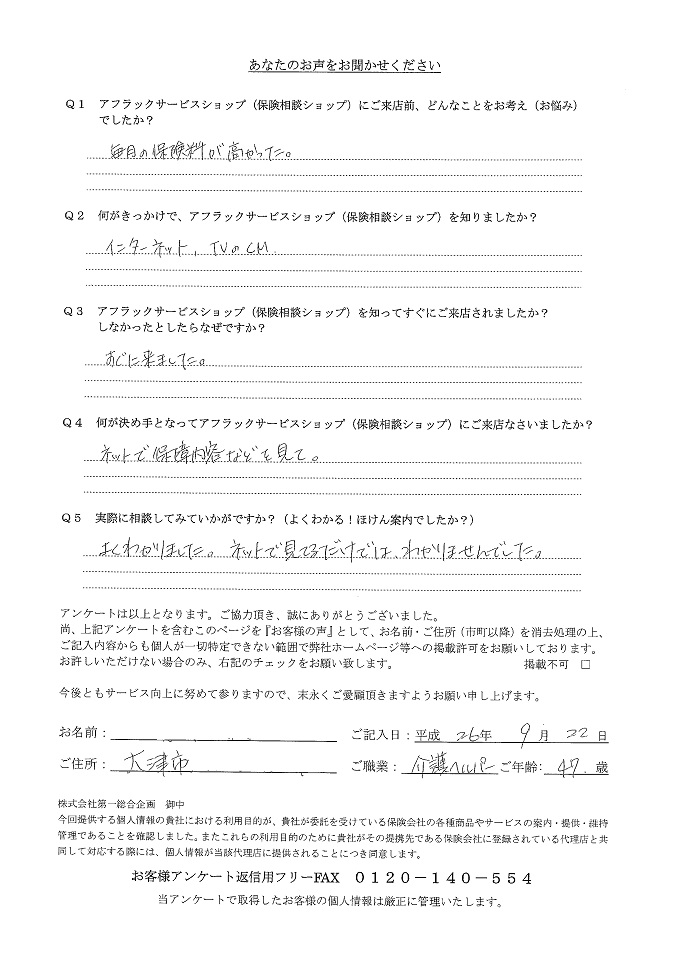 あなたのお声をお聞かせください
Q1 アフラックサービスショップ（保険相談ショップ）にご来店前、どんなことをお考え（お悩み）
でしたか？
毎月の保険料が高かった。
Q2 何がきっかけで、アフラックサービスショップ（保険相談ショップ）を知りましたか？
インターネット、TVのCM
Q3 アフラックサービスショップ（保険相談ショップ）を知ってすぐにご来店されましたか？
しなかったとしたらなぜですか？
すぐに来ました。
Q4 何が決め手となってアフラックサービスショップ（保険相談ショップ）にご来店なさいましたか？
ネットで保障内容などを見て。
Q5 実際に相談してみていかがですか？（よくわかる！ほけん案内でしたか？）
よくわかりました。ネットで見てるだけでは、わかりませんでした。
アンケートは以上となります。ご協力頂き、誠にありがとうございました。
尚、上記アンケートを含むこのページを『お客様の声』として、お名前・ご住所（市町以降）を消去処理の上、
ご記入内容からも個人が一切特定できない範囲で弊社ホームページ等への掲載許可をお願いしております。
お許しいただけない場合のみ、右記のチェックをお願い致します。 掲載不可 □
今後ともサービス向上に努めて参りますので、末永くご愛顧頂きますようお願い申し上げます。
お名前： ご記入日：平成 26年 9月 22日
ご住所： 大津市 ご職業： 介護ヘルパー ご年齢： 47.歳
株式会社第一総合企画 御中
今回提供する個人情報の貴社における利用目的が、貴社が委託を受けている保険会社の各種商品やサービスの案内・提供・維持
管理であることを確認しました。またこれらの利用目的のために貴社がその提携先である保険会社に登録されている代理店と共
同して対応する際には、個人情報が当該代理店に提供されることにつき同意します。
お客様アンケート返信用フリーFAX 0120－140－554
当アンケートで取得したお客様の個人情報は厳正に管理いたします。